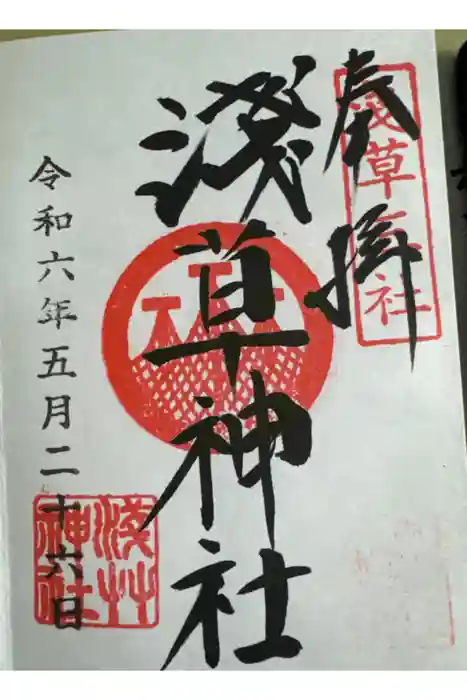 奉拝
浅草三社
淺草神社
令和六年五月二十六日
淺艸
神社